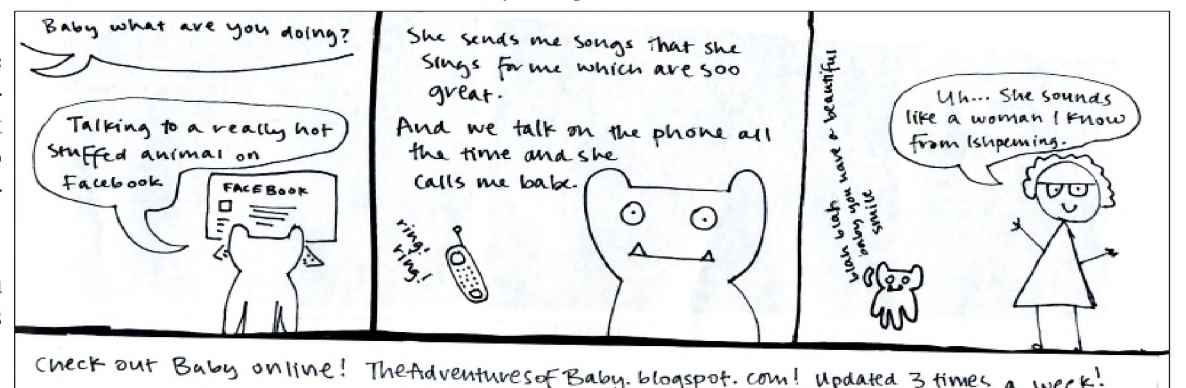 Baby what are you doing?
Talking to a really hot
stuffed animal on
Facebook
FACEBOOK
She sends me songs that she
sings for me which are soo
great.
And we talk on the phone all
the time and she
calls me babe.
ring!
ring!
blah blah
baby you have a beautiful
smile
Uh... She sounds
like a woman I know
from Ishpeming.
Check out Baby online! TheAdventuresofBaby.blogspot.com! Updated 3 times a week!